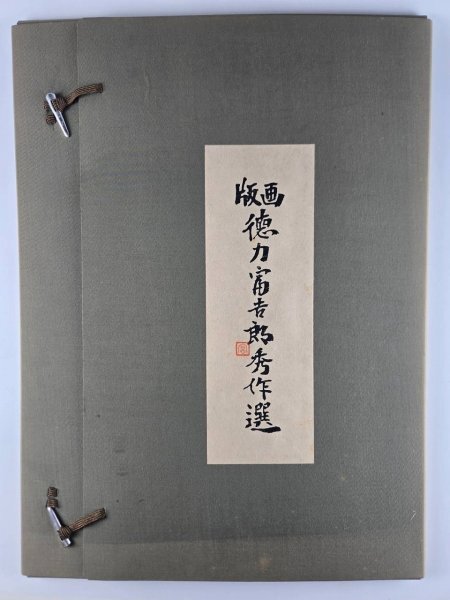 版画
徳力富吉郎秀作選